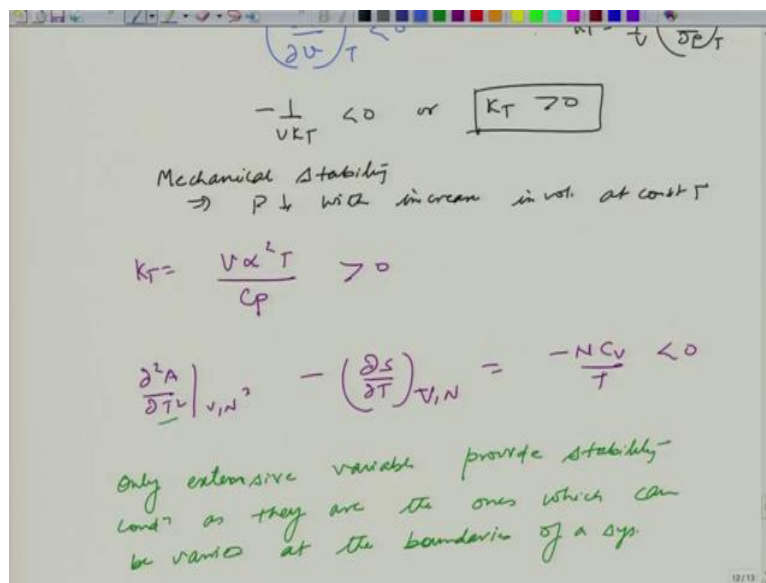 (∂v)_T < 0 K_T = 1/V (∂P)_T
-1/(VK_T) < 0 or K_T > 0
Mechanical Stability
⇒ P ↓ with increase in vol. at const T
K_T = Vα²T/Cp > 0
∂²A/∂T²|_V,N = -(∂S/∂T)_V,N = -NCv/T < 0
Only extensive variable provide stability
condⁿ as they are the ones which can
be varied at the boundaries of a sys.
12/13